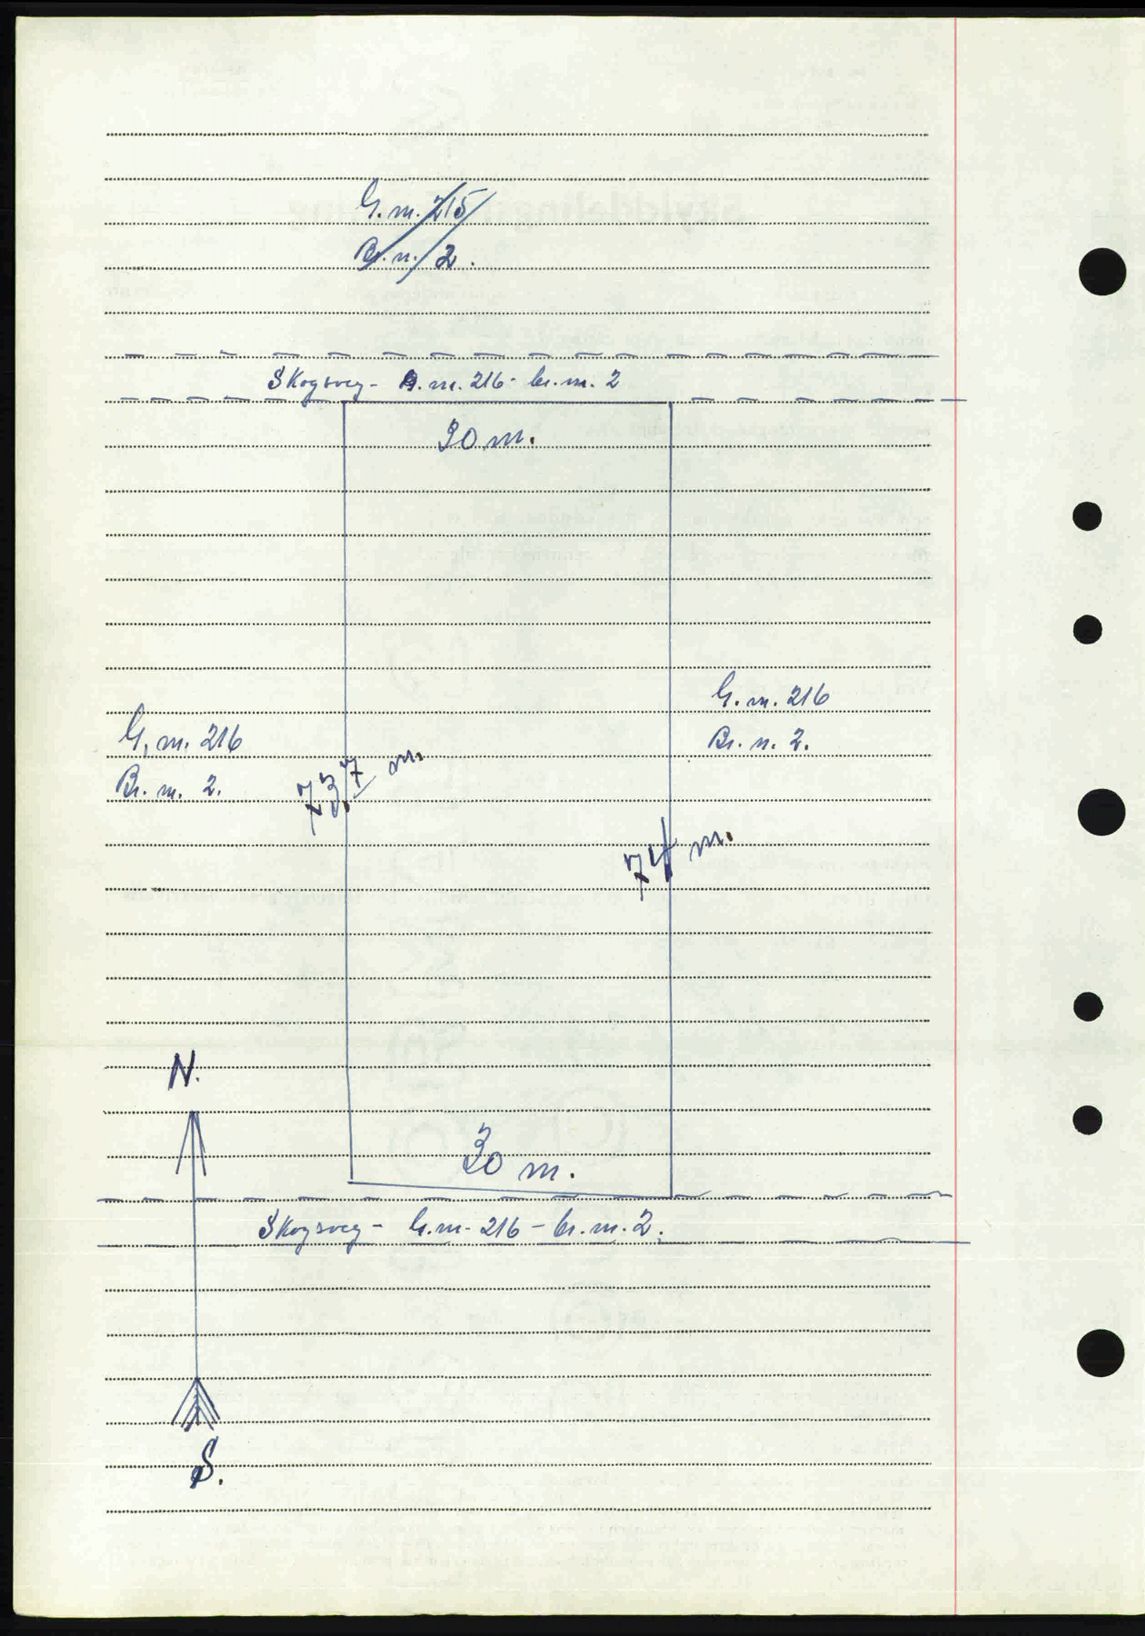 G.n. 215
Br.n. 2.
Skogsveg - G.n. 216 - br.n. 2
30 m.
G.n. 216
Br. n. 2.
G.n. 216
Br. n. 2.
73,7 m.
74 m.
N.
30 m.
Skogsveg - G.n. 216 - br.n. 2.
S.